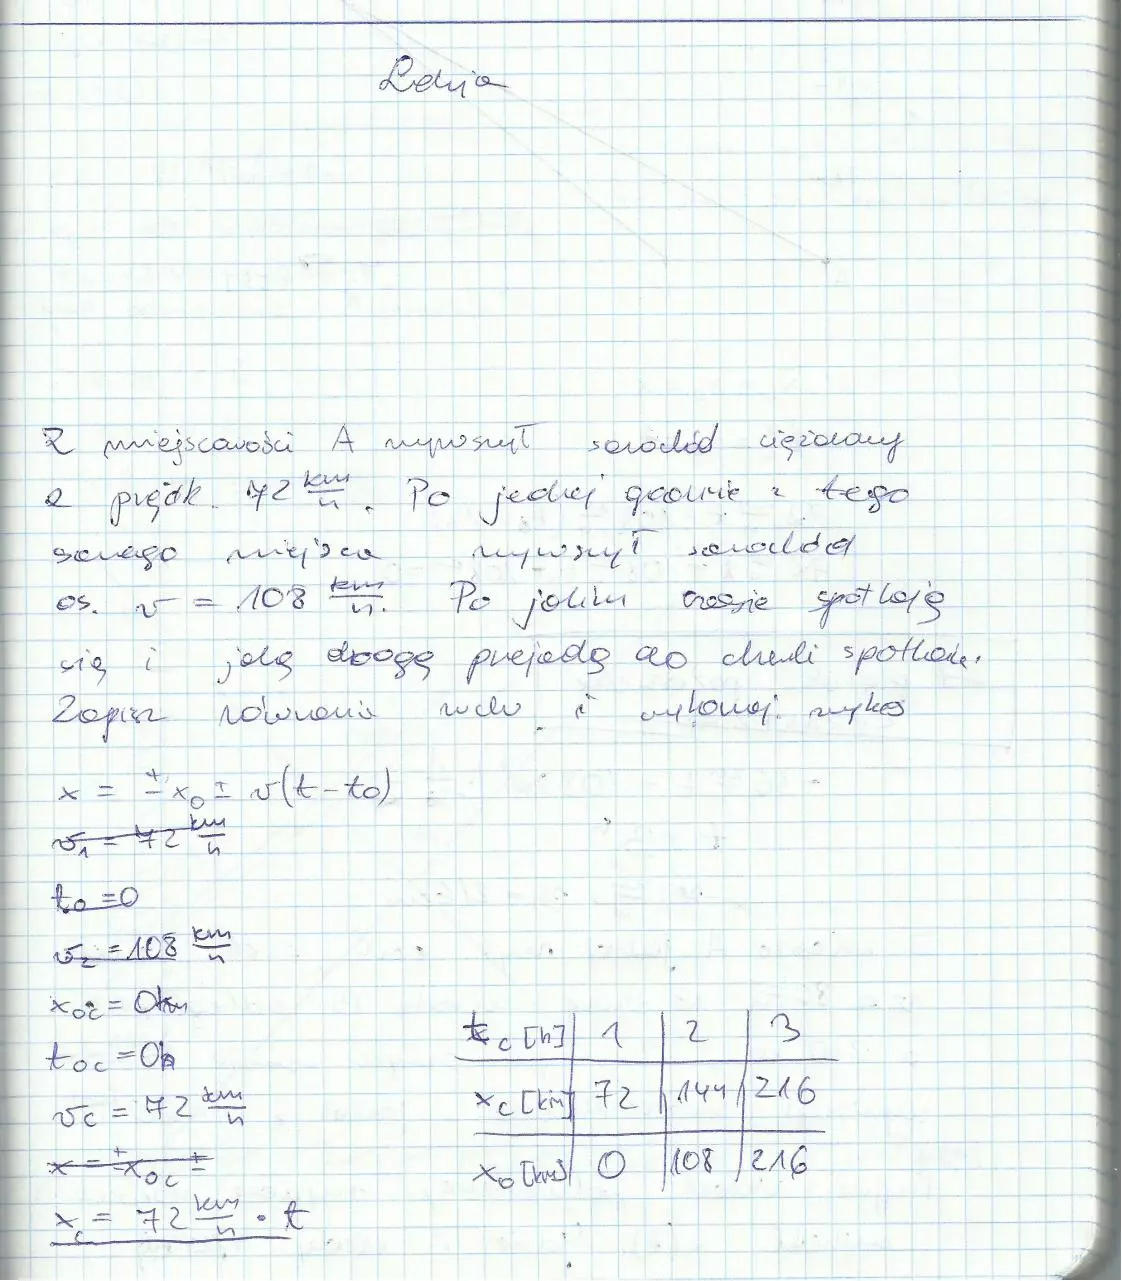 Lekcja
Z miejscowości A wyruszył samochód ciężarowy
z prędk. 72 km/h. Po jednej godzinie z tego
samego miejsca wyruszył samochód
os. v = 108 km/h. Po jakim czasie spotkają
się i jaką drogę przejadą do chwili spotkania.
Zapisz równania ruchu i wykonaj. wykres
x = ± x₀ ± v(t - t₀)
v₁ = 72 km/h
t₀ = 0
v₂ = 108 km/h
x₀c = 0km
t₀c = 0h
vc = 72 km/h
x = ± x₀c ±
xc = 72 km/h · t
tc [h] 1 2 3
xc [km] 72 144 216
x₀ [km] 0 108 216